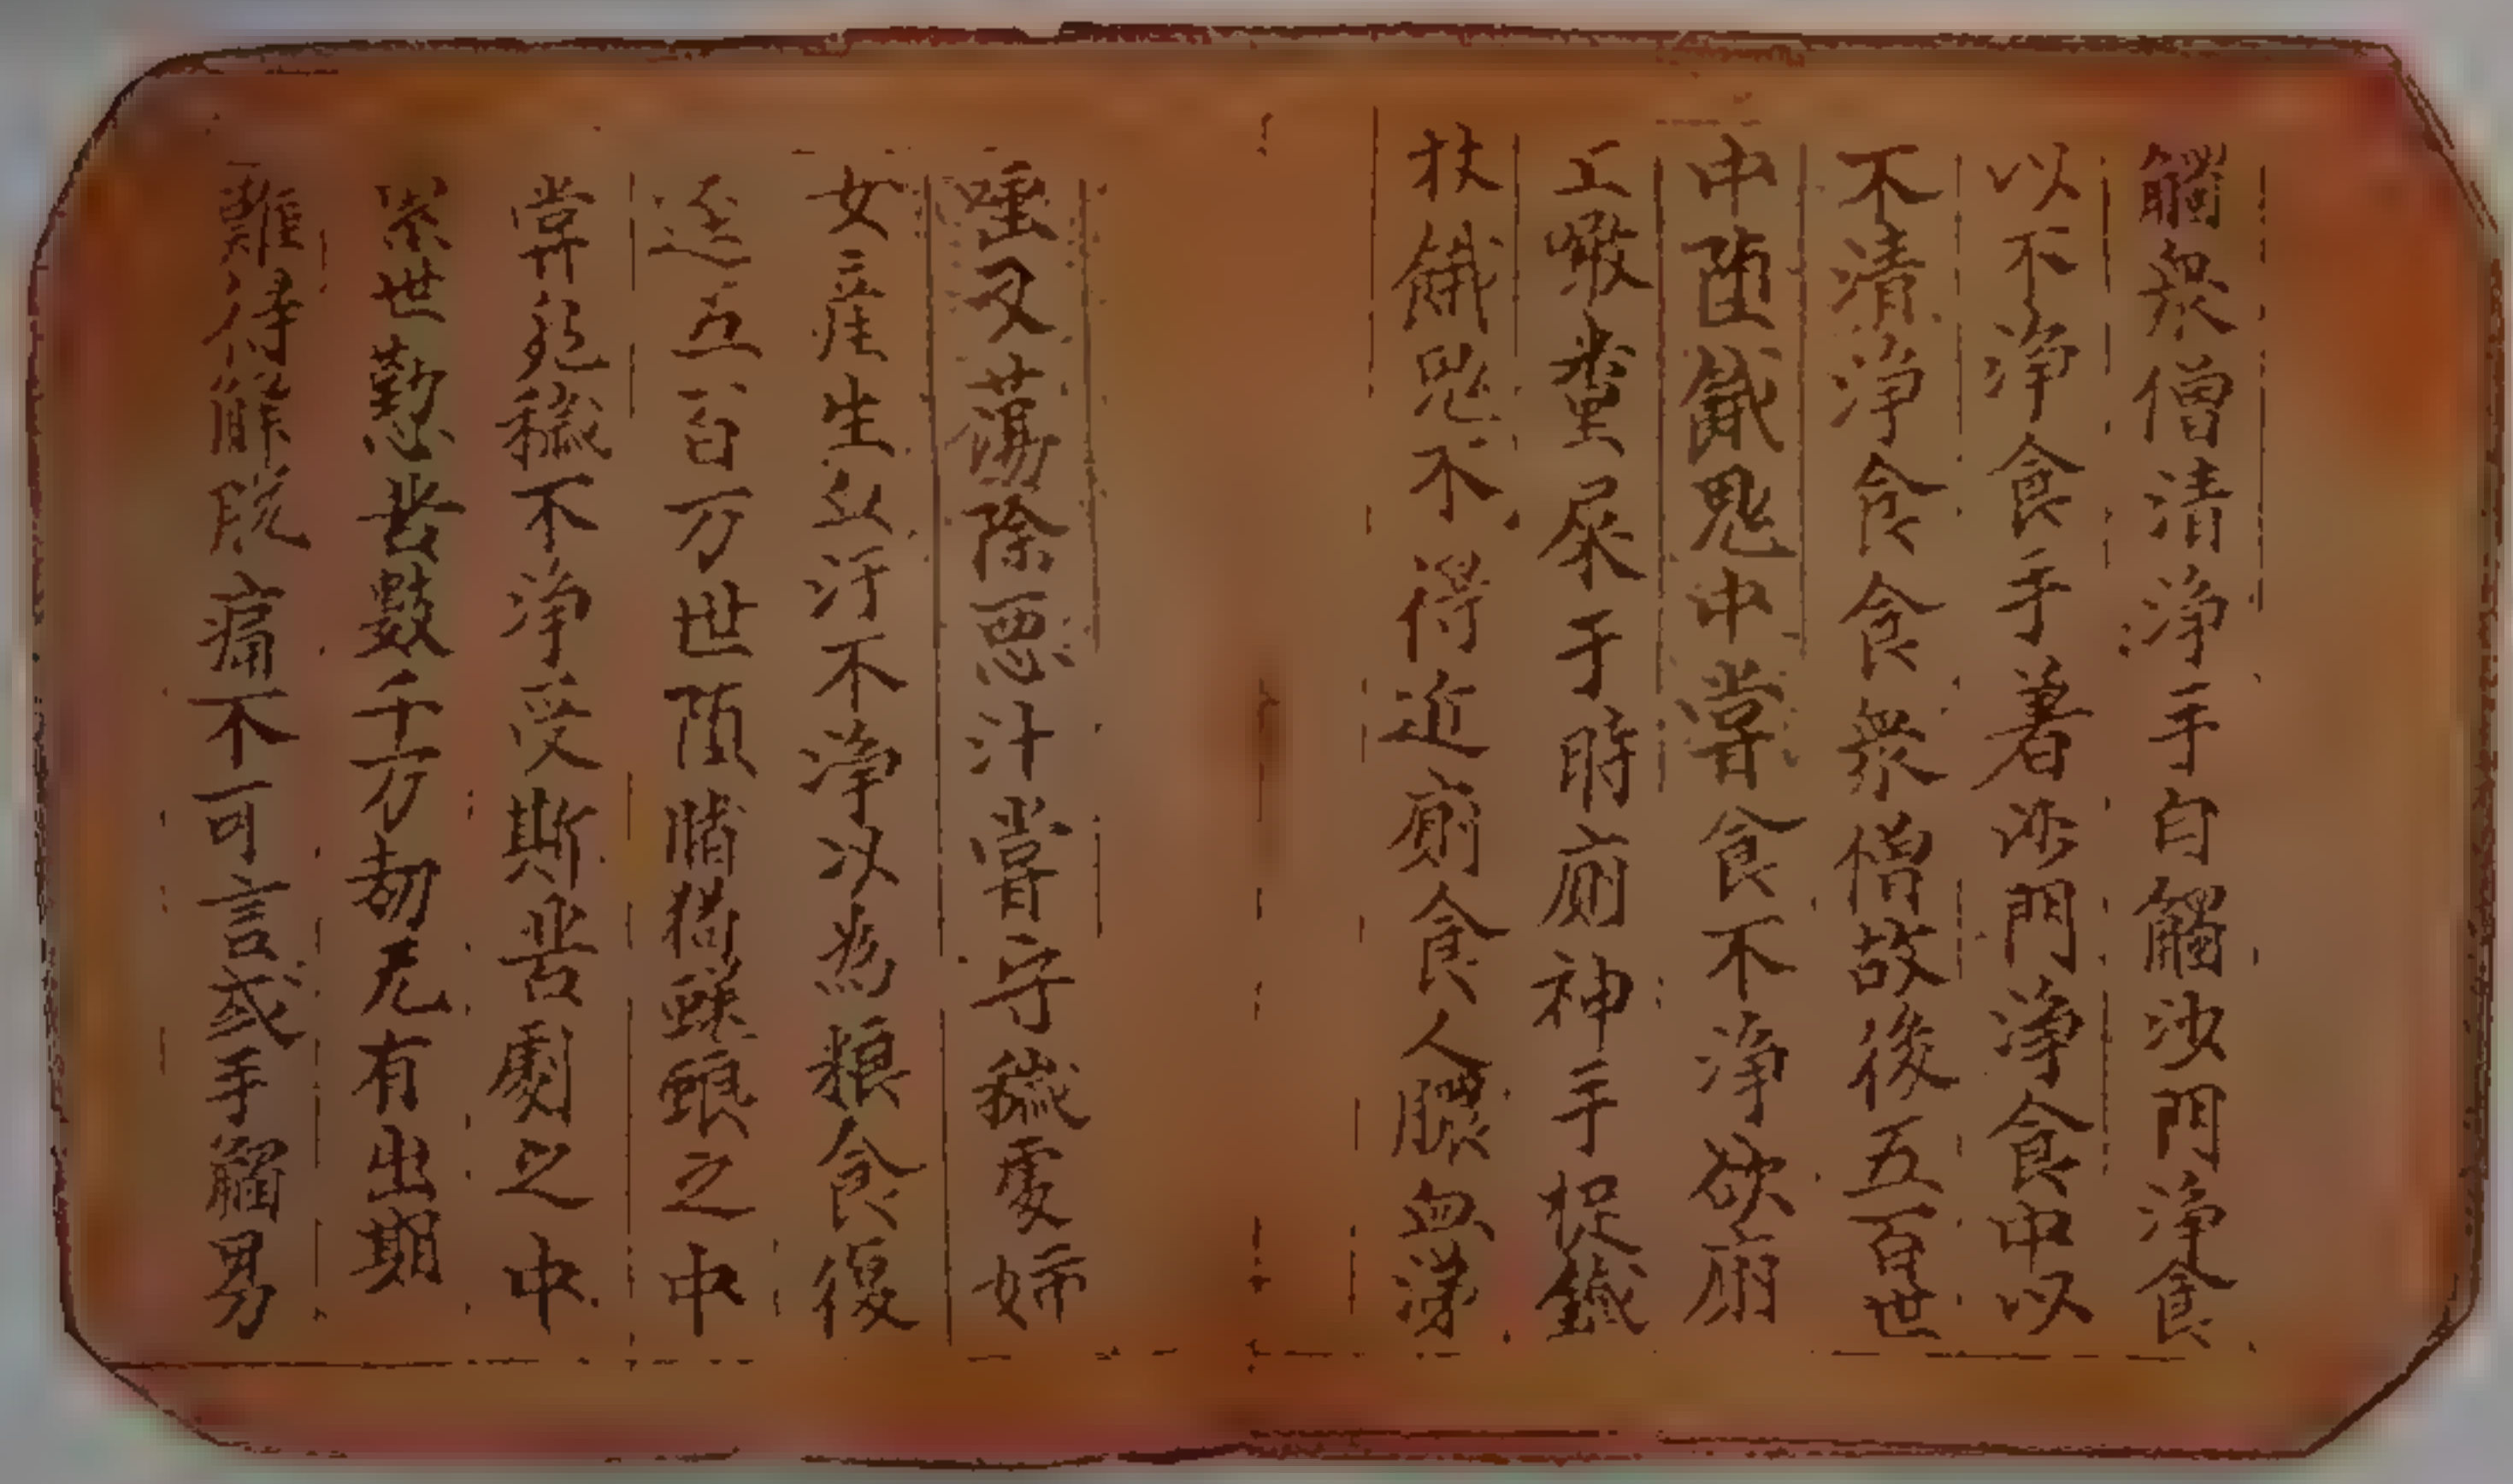 觸衆僧清淨手自觸沙門淨食
以不淨食手著沙門淨食中以
不清淨食食衆僧故後五百世
中墮餓鬼中常食不淨欲廁
上噉糞屎于時廁神手捉鐵
杖餓鬼不得近廁食人膿血涕
唾又蕩除惡汁常守穢處婦
女産生血汙不淨以為粮食復
逕五百万世墮猪狗蛷蜋之中
常處穢不淨受斯苦劇之中
累世懃苦數千万劫无有出期
難得解脫痛不可言或手觸男